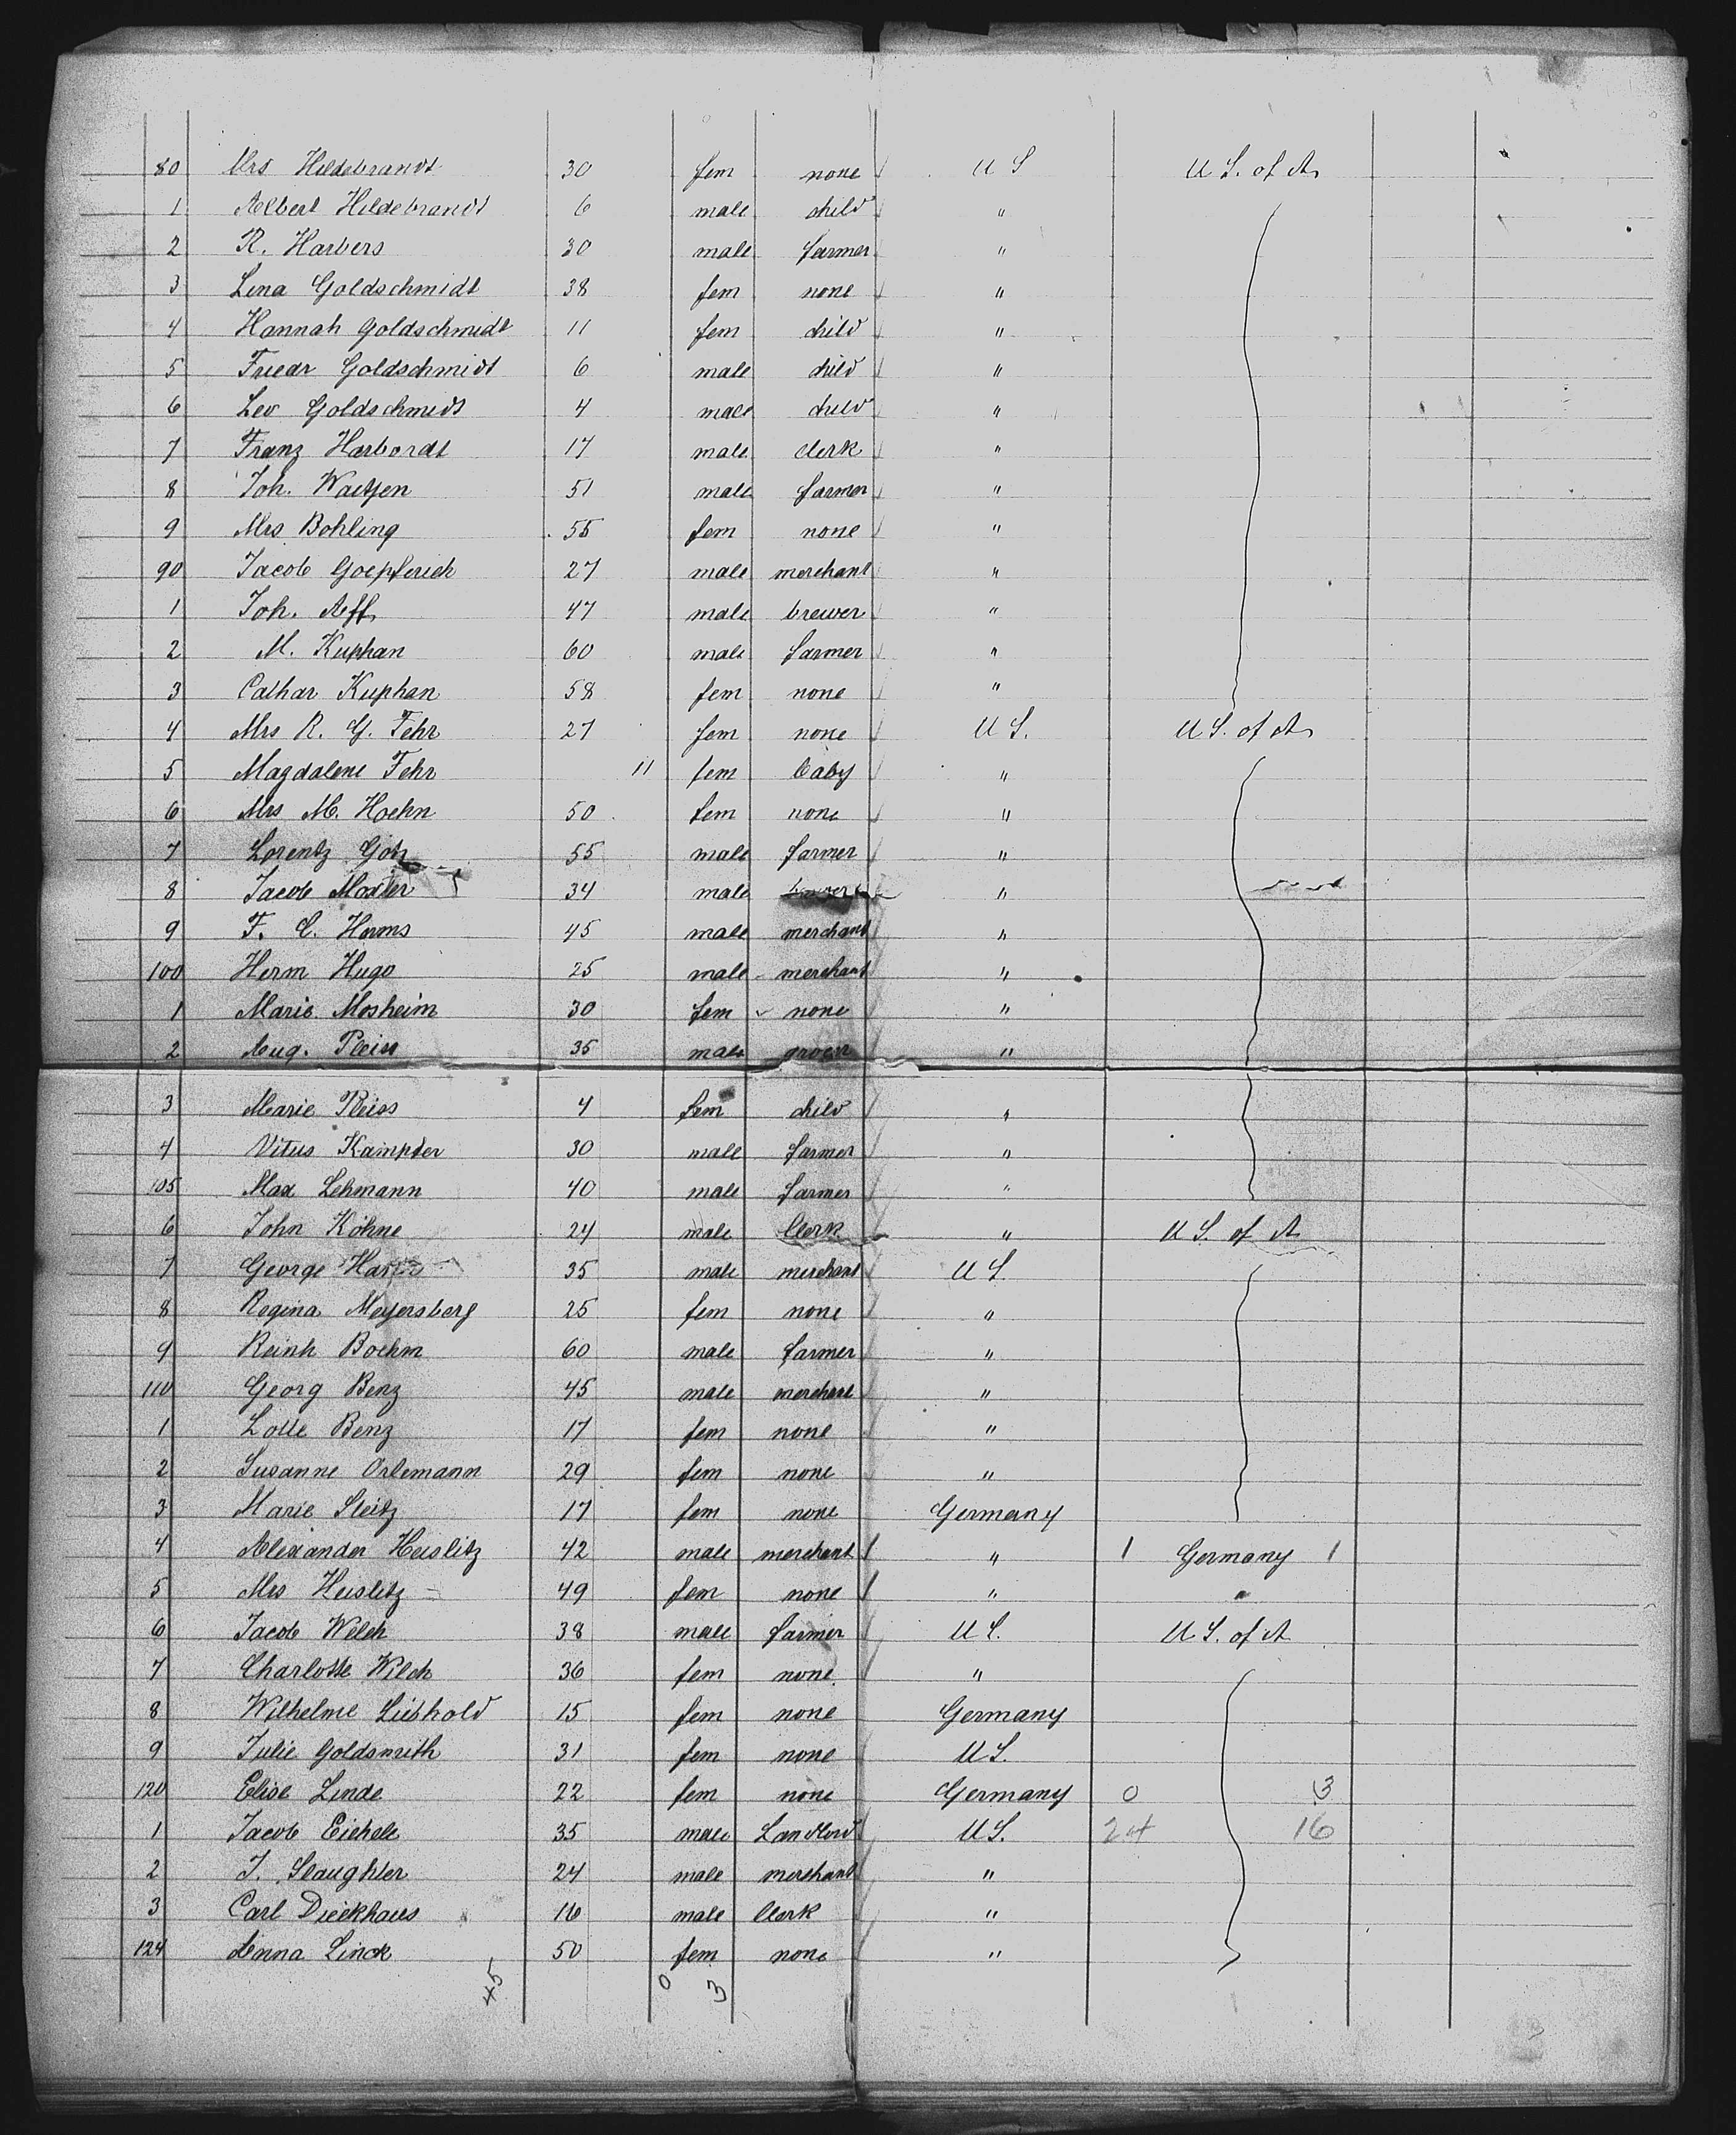 80 Mrs Hildebrandt 30 fem none U S U S. of A
1 Albert Hildebrandt 6 male child "
2 R. Harbers 30 male farmer "
3 Lena Goldschmidt 38 fem none "
4 Hannah Goldschmidt 11 fem child "
5 Friedr Goldschmidt 6 male child "
6 Leo Goldschmidt 4 male child "
7 Franz Harbordt 17 male clerk "
8 Joh. Waetjen 51 male farmer "
9 Mrs Bohling 55 fem none "
90 Jacob Goepferich 27 male merchant "
1 Joh. Aff 47 male brewer "
2 M. Kuphan 60 male farmer "
3 Cathar Kuphan 58 fem none "
4 Mrs R. G. Fehr 27 fem none U S. U S. of A
5 Magdalene Fehr 11 fem baby "
6 Mrs M. Hoehn 50 fem none "
7 Lorentz Götz 55 male farmer "
8 Jacob Moxter 34 male "
9 F. C. Harms 45 male merchant "
100 Herm Hugo 25 male merchant "
1 Marie Mosheim 30 fem none "
2 Aug. Pleiss 35 male grocer "
3 Marie Pleiss 4 fem child "
4 Vitus Kampter 30 male farmer "
105 Max Lehmann 40 male farmer "
6 John Köhne 24 male Clerk " U S. of A
7 George 35 male merchant U S.
8 Regina Meyersberg 25 fem none "
9 Reinh Boehm 60 male farmer "
110 Georg Benz 45 male merchant "
1 Lotte Benz 17 fem none "
2 Susanne Orlemann 29 fem none "
3 Marie Steitz 17 fem none Germany
4 Alexander Heislitz 42 male merchant " 1 Germany 1
5 Mrs Heislitz 49 fem none " "
6 Jacob Welch 38 male farmer U S. U S. of A
7 Charlotte Welch 36 fem none "
8 Wilhelme Liebhold 15 fem none Germany
9 Julie Goldsmith 31 fem none U S.
120 Elise Linde 22 fem none Germany 0 3
1 Jacob Eichele 35 male Landlord U S. 24 16
2 J. Slaughter 24 male merchant "
3 Carl Dieckhaus 16 male Clerk "
124 Anna Linck 50 fem none "
45 0 3